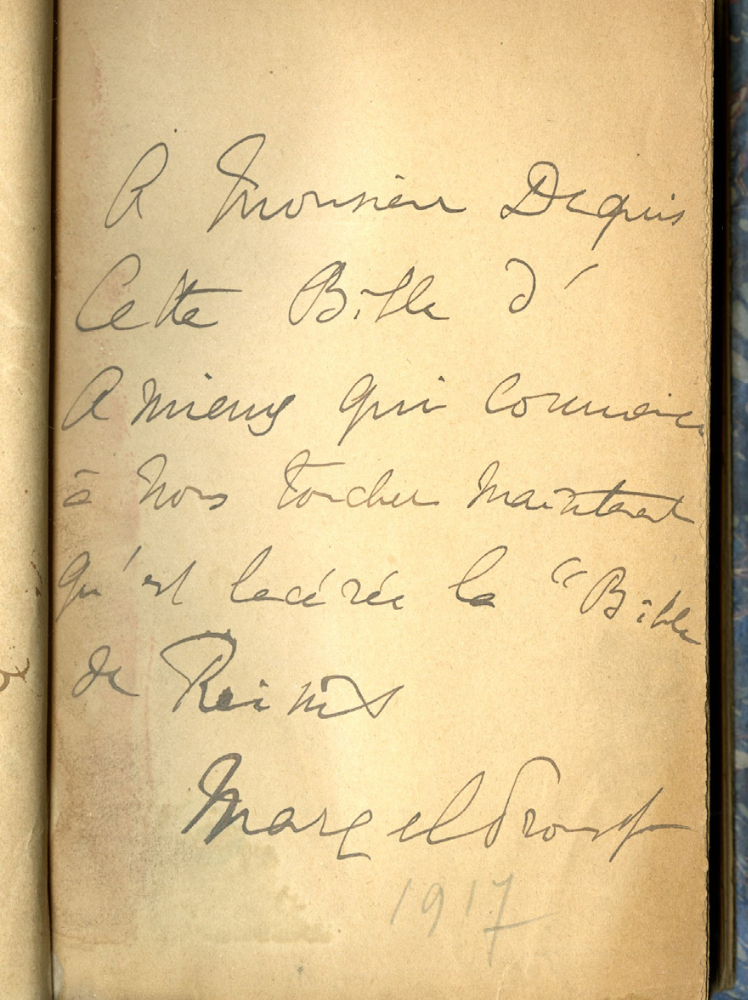 A Monsieur Dequis
Cette Bible d'
Amiens qui commence
à nous toucher maintenant
qu'est lacérée la "Bible
de Reims
Marcel Proust
1917